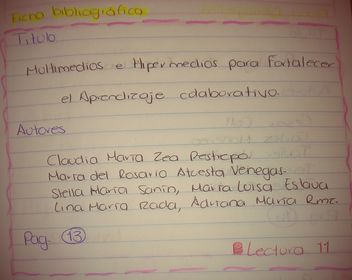 Ficha bibliográfica
Titulo
Multimedios e Hipermedios para Fortalecer
el Aprendizaje colaborativo.
Autores
Claudia María Zea Restrepo
María del Rosario Atuesta Venegas.
Stella María Sanín, María Luisa Eslava
Lina María Rada, Adriana María Rmz.
Pag. 13
Lectura 11